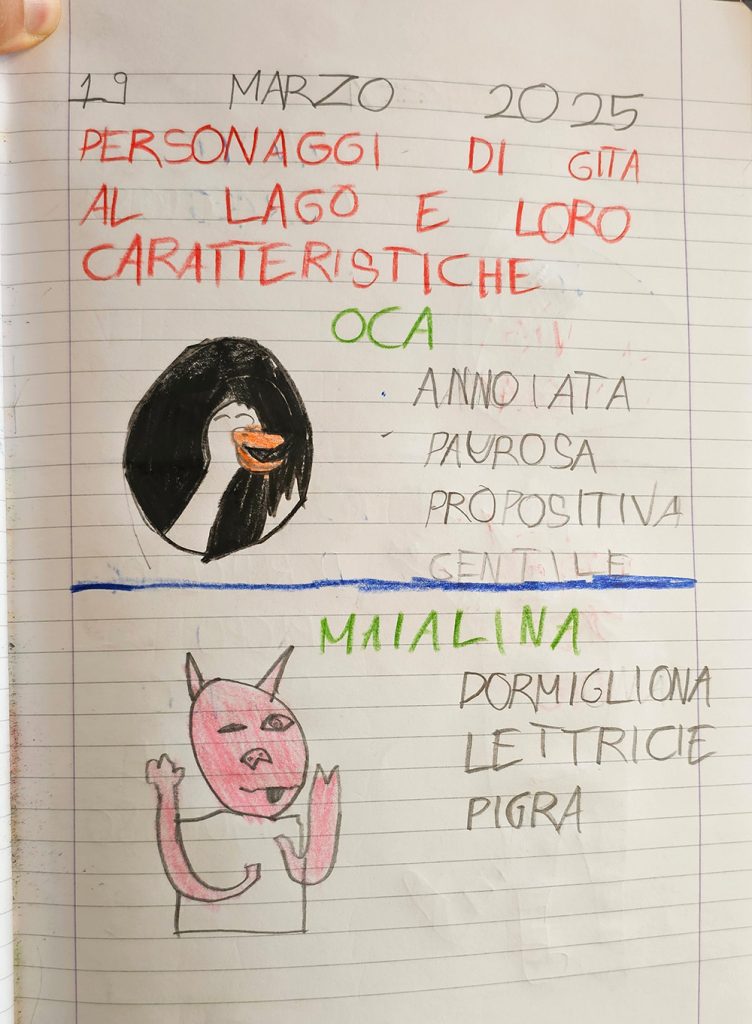 19 MARZO 2025
PERSONAGGI DI GITA
AL LAGO E LORO
CARATTERISTICHE
OCA
ANNOIATA
PAUROSA
PROPOSITIVA
GENTILE
MAIALINA
DORMIGLIONA
LETTRICIE
PIGRA